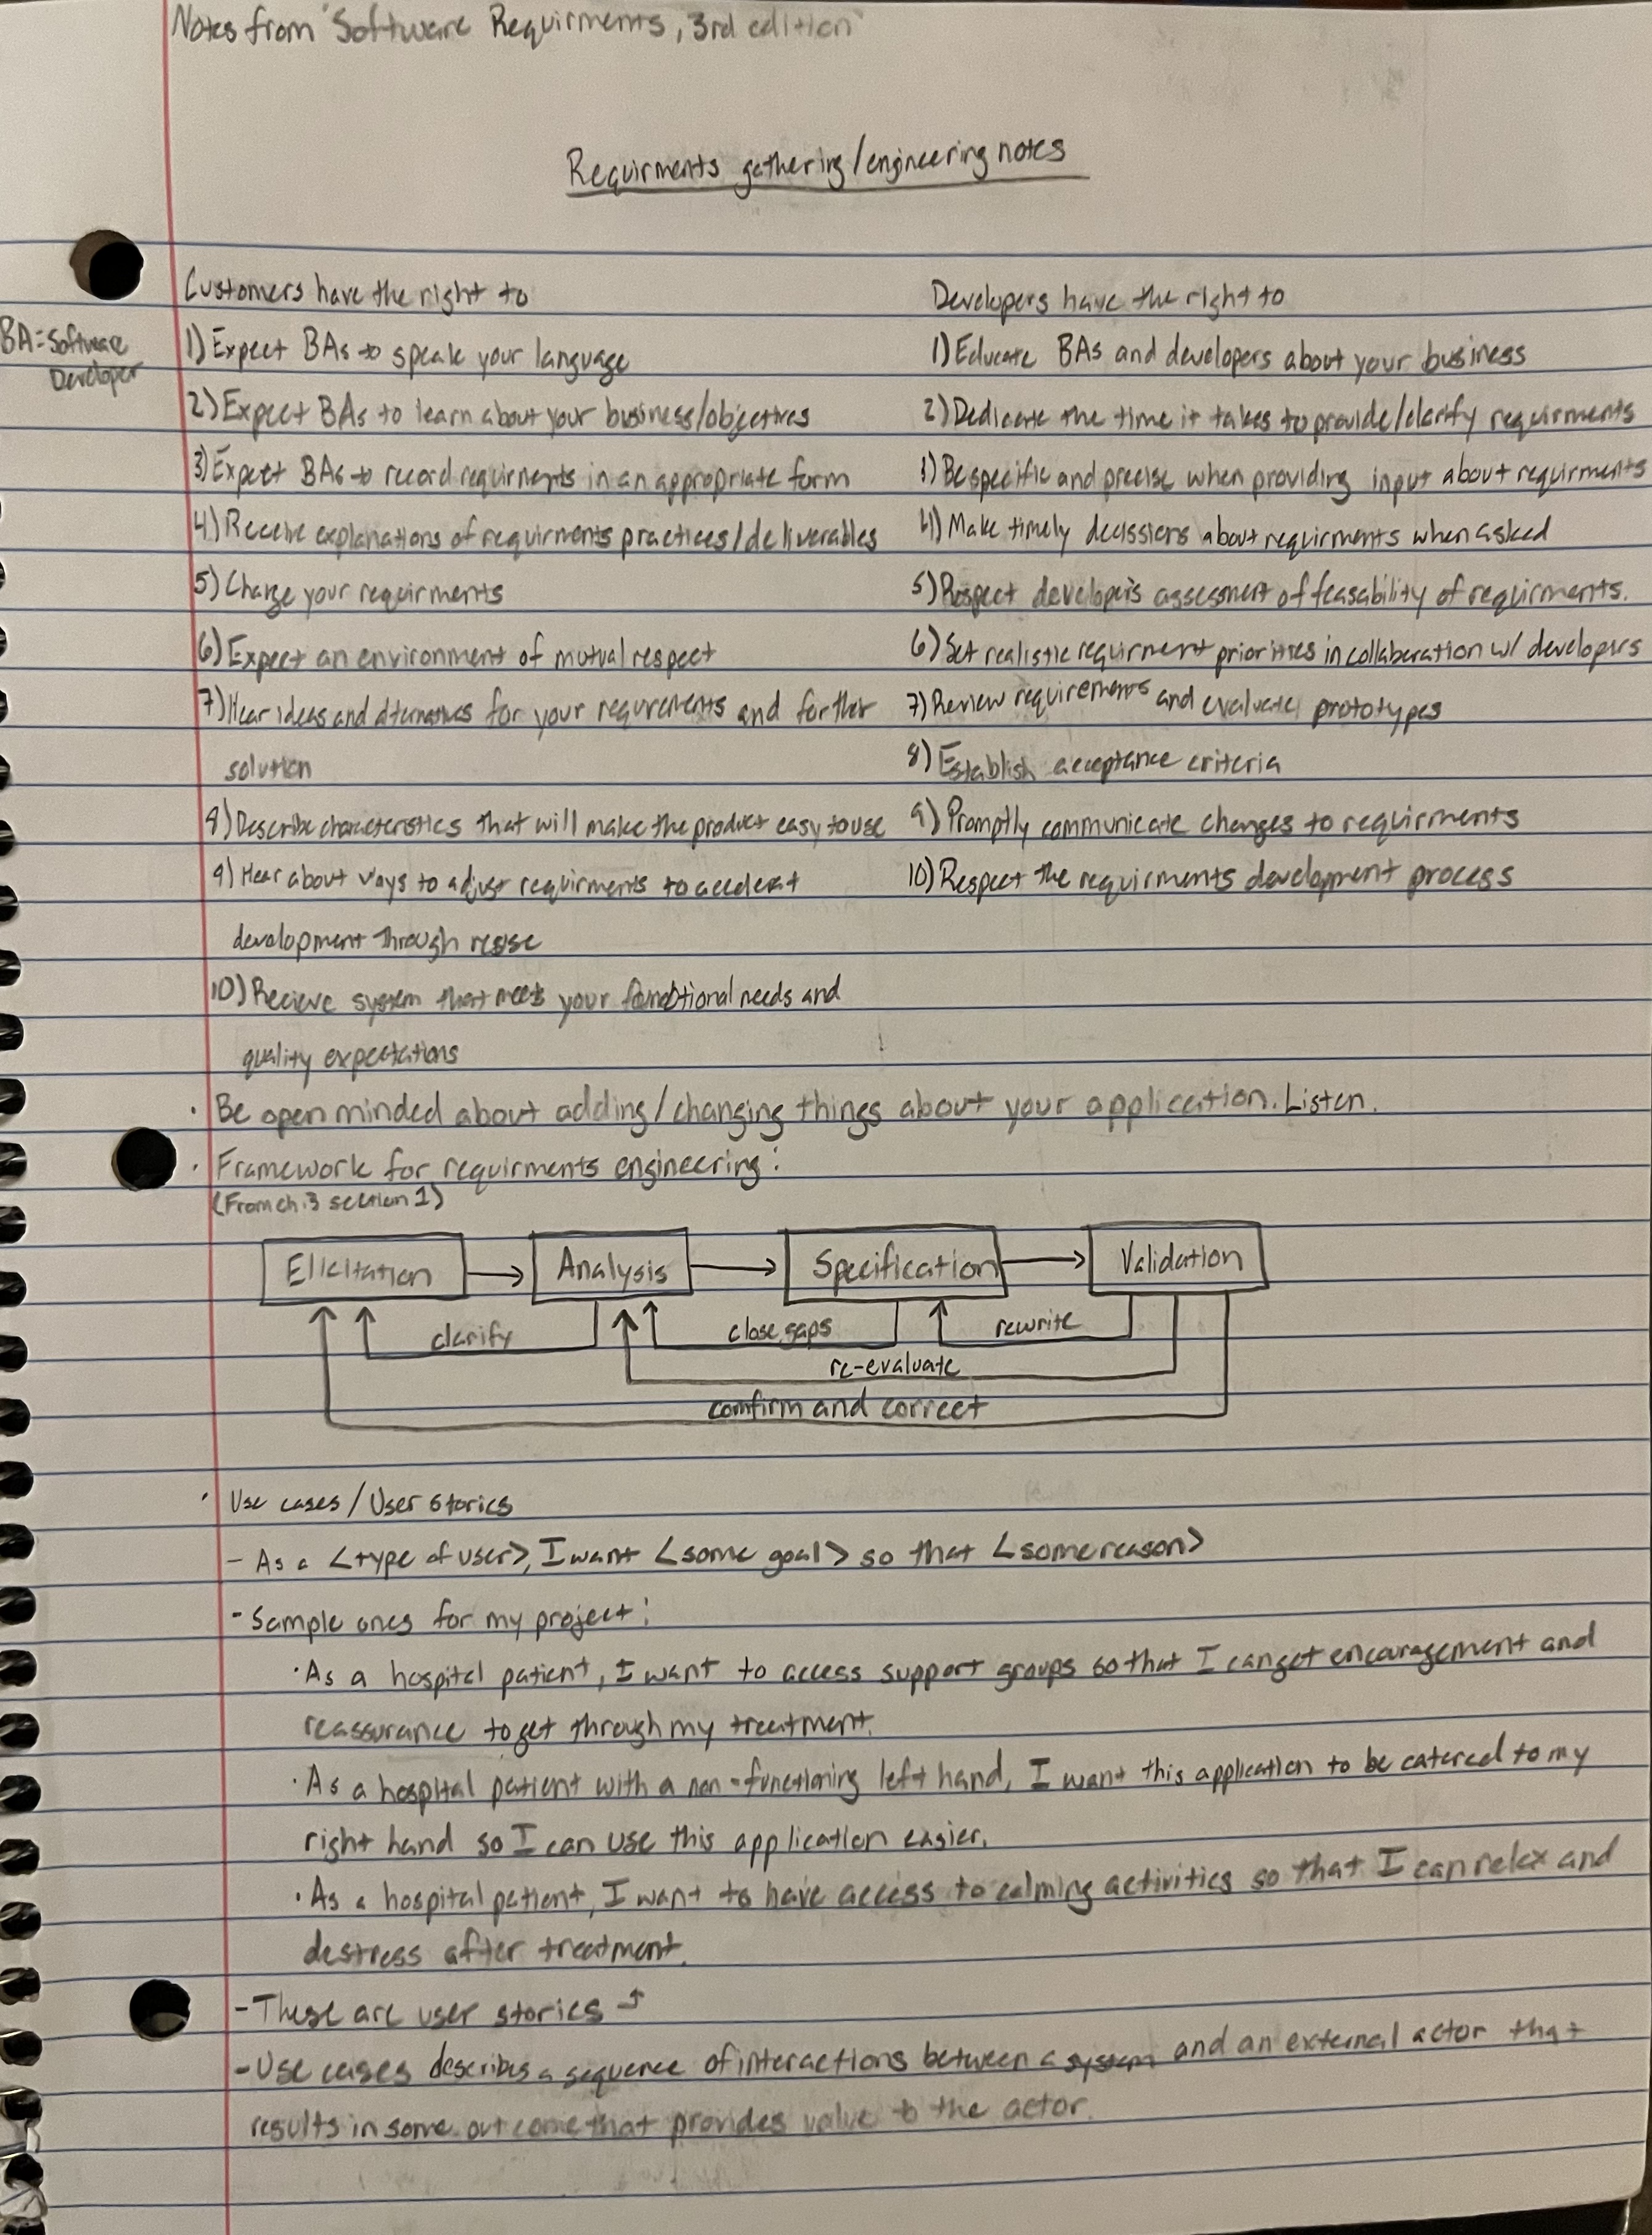 Notes from "Software Requirments, 3rd edition"
Requirments gathering/engineering notes
Customers have the right to
BA=Software
Developer
1) Expect BAs to speak your language
2) Expect BAs to learn about your business/objectives
3) Expect BAs to record requirments in an appropriate form
4) Receive explanations of requirments practices/deliverables
5) Change your requirments
6) Expect an environment of mutual respect
7) Hear ideas and alternatives for your requirements and for their
solution
8) Describe characteristics that will make the product easy to use
9) Hear about ways to adjust requirments to accelerat
development through reuse
10) Recieve system that meets your functional needs and
quality expectations
Developers have the right to
1) Educate BAs and developers about your business
2) Dedicate the time it takes to provide/clarify requirments
3) Be specific and precise when providing input about requirments
4) Make timely decissions about requirments when asked
5) Respect developers assessment of feasability of requirments.
6) Set realistic requirment priorities in collaberation w/ developers
7) Review requirements and evaluate prototypes
8) Establish acceptance criteria
9) Promptly communicate changes to requirments
10) Respect the requirments development process
· Be open minded about adding/changing things about your application. Listen.
· Framework for requirments engineering:
(From ch.3 section 1)
Elicitation
Analysis
Specification
Validation
clarify
close gaps
rewrite
re-evaluate
comfirm and correct
· Use cases/User stories
- As a <type of user>, I want <some goal> so that <some reason>
- Sample ones for my project:
· As a hospital patient, I want to access support groups so that I can get encouragement and
reassurance to get through my treatment.
· As a hospital patient with a non-functioning left hand, I want this application to be catered to my
right hand so I can use this application easier.
· As a hospital patient, I want to have access to calming activities so that I can relax and
destress after treatment.
- These are user stories ⤴
- Use cases describes a sequence of interactions between a system and an external actor that
results in some outcome that provides value to the actor.